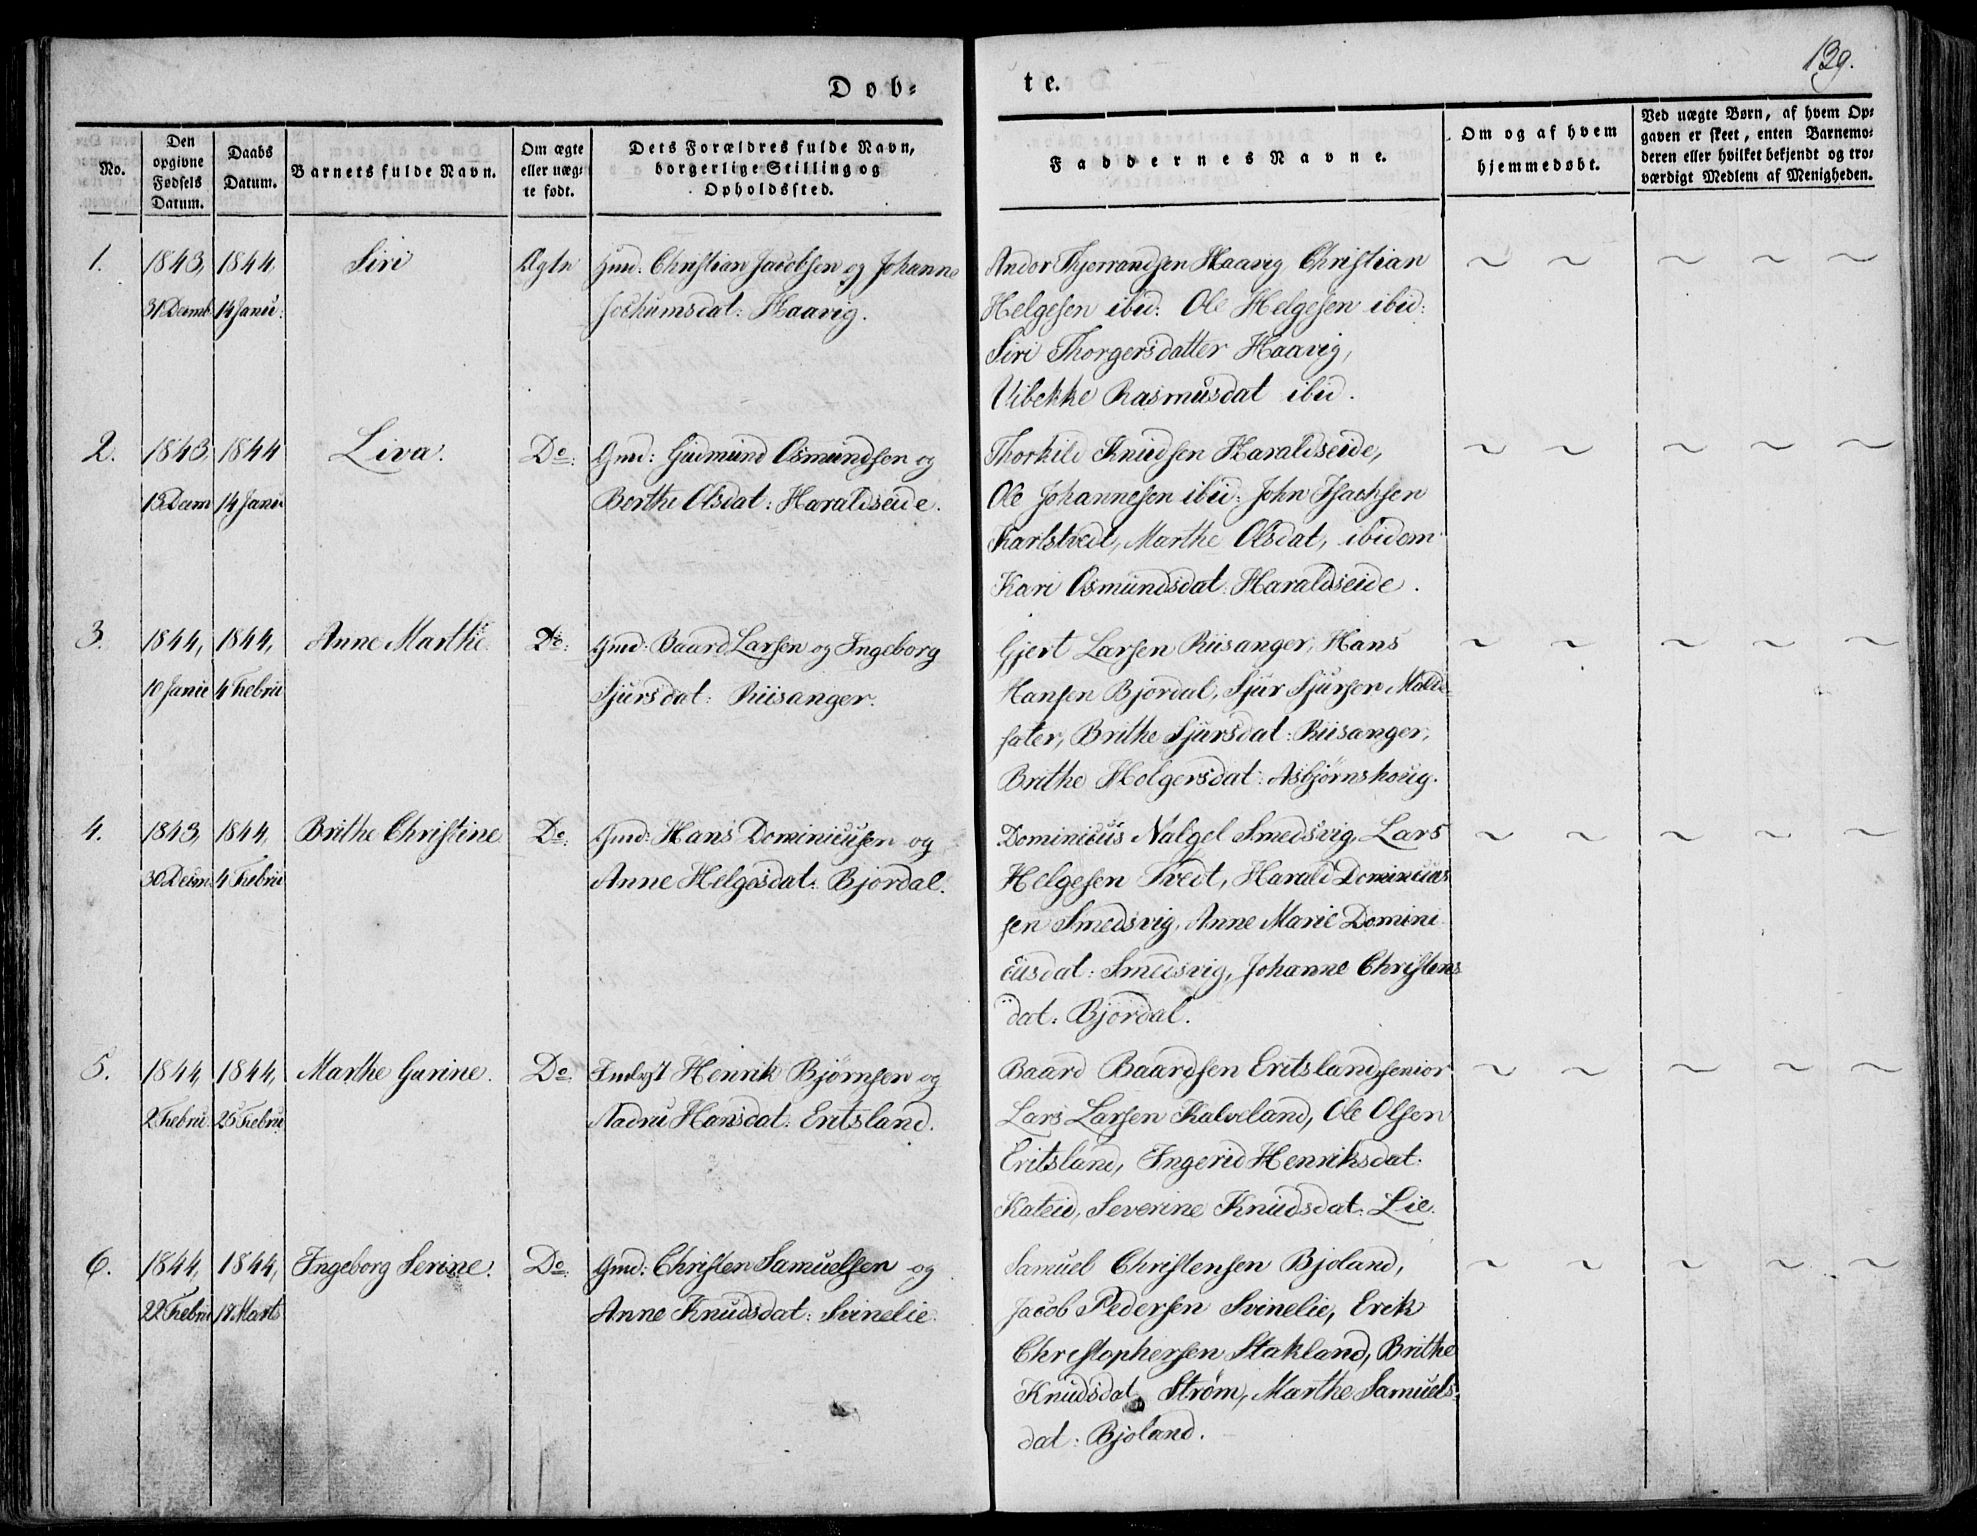 139.
Døb-
te.
No.
Den
opgivne
Fødsels
Datum.
Daabs
Datum.
Barnets fulde Navn.
Om ægte
eller uæg-
te født.
Dets Forældres fulde Navn,
borgerlige Stilling og
Opholdssted.
Faddernes Navne.
Om og af hvem
hjemmedøbt.
Ved uægte Børn, af hvem Op-
gaven er skeet, enten Barnemo-
deren eller hvilket bekjendt og tro-
værdigt Medlem af Menigheden.
1. 1843, 1844, Siri Ægte Gmd: Christian Jacobsen og Johanne
31 Decmb 14 Janu: Jochumsdat: Haavig.
Andor Thjerrandsen Haavig Christian
Helgesen ibid: Ole Helgesen ibid:
Siri Thorgersdatter Haavig,
Vibekke Rasmusdat ibid.
2. 1843, 1844 Liva. Do: Gmd: Gudmund Osmundsen og
14 Janu Berthe Olsdat: Haraldseide.
Thorkild Knudsen Haraldseide,
Ole Johannesen ibid: John Isachsen
Karlstvedt, Marthe Olsdat, ibidem
Kari Osmundsdat: Haraldseide.
3. 1844, 1844, Anne Marthe. Do: Gmd: Baard Larsen og Ingeborg
10 Janu 4 Febru Sjursdat: Riisanger.
Gjert Larsen Riisanger, Hans
Hansen Bjordal, Sjur Sjursen Molde-
sater, Brithe Sjursdat: Riisanger,
Brithe Holgersdat: Asbjørnshoug.
4. 1843, 1844, Brithe Christine Do: Gmd: Hans Dominicusen og
30 Decm 4 Febru Anne Helgesdat: Bjordal.
Dominicus Nalgel Smedsvig, Lars
Helgesen Tvedt, Harald Dominicus
sen Smedsvig, Anne Marie Domini
cusdat: Smedsvig, Johanne Christens
dat: Bjordal.
5. 1844, 1844, Marthe Gurine. Do: Henrik Bjørnsen og
2 Febru 25 Febru Hansdat: Eritsland.
Baard Baardsen Eritsland senior
Lars Larsen Kalveland, Ole Olsen
Eritsland, Ingerid Henriksdat:
Kateid, Severine Knudsdat: Lie.
6. 1844, 1844, Ingeborg Serine. Do: Gmd: Christen Samuelsen og
22 Febru Marts Anne Knudsdat: Svinelie.
Samuel Christensen Bjoland,
Jacob Pedersen Svinelie, Erik
Christophersen Stakland, Brithe
Knudsdat Strøm, Marthe Samuels-
dat: Bjoland.